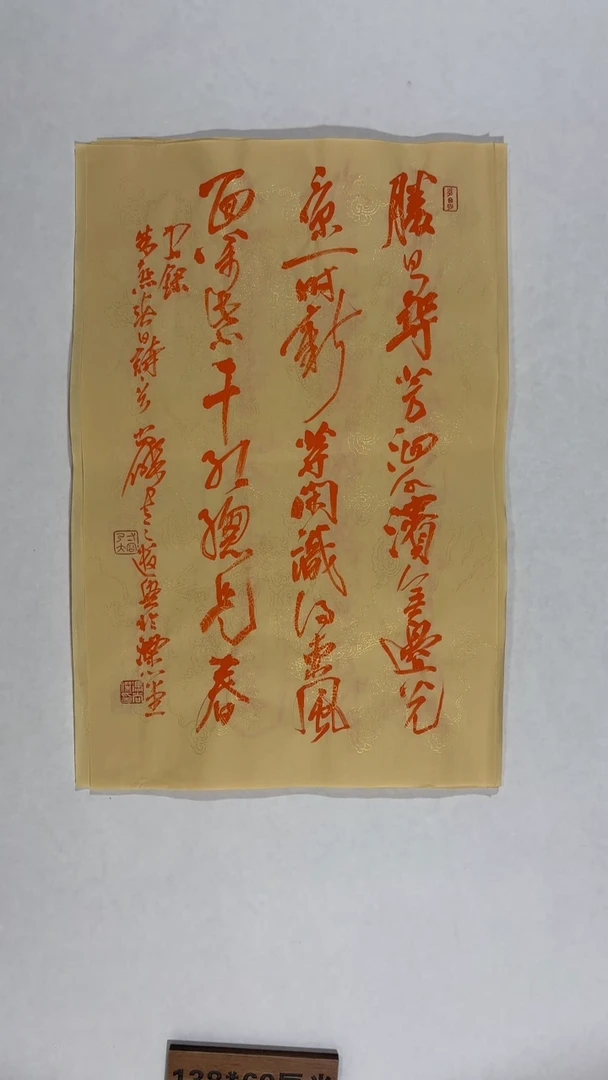 勝日尋芳泗水濱無邊光
景一時新等閑識得東風
面萬紫千紅總是春
錄
朱熹春日詩
138*60厘米